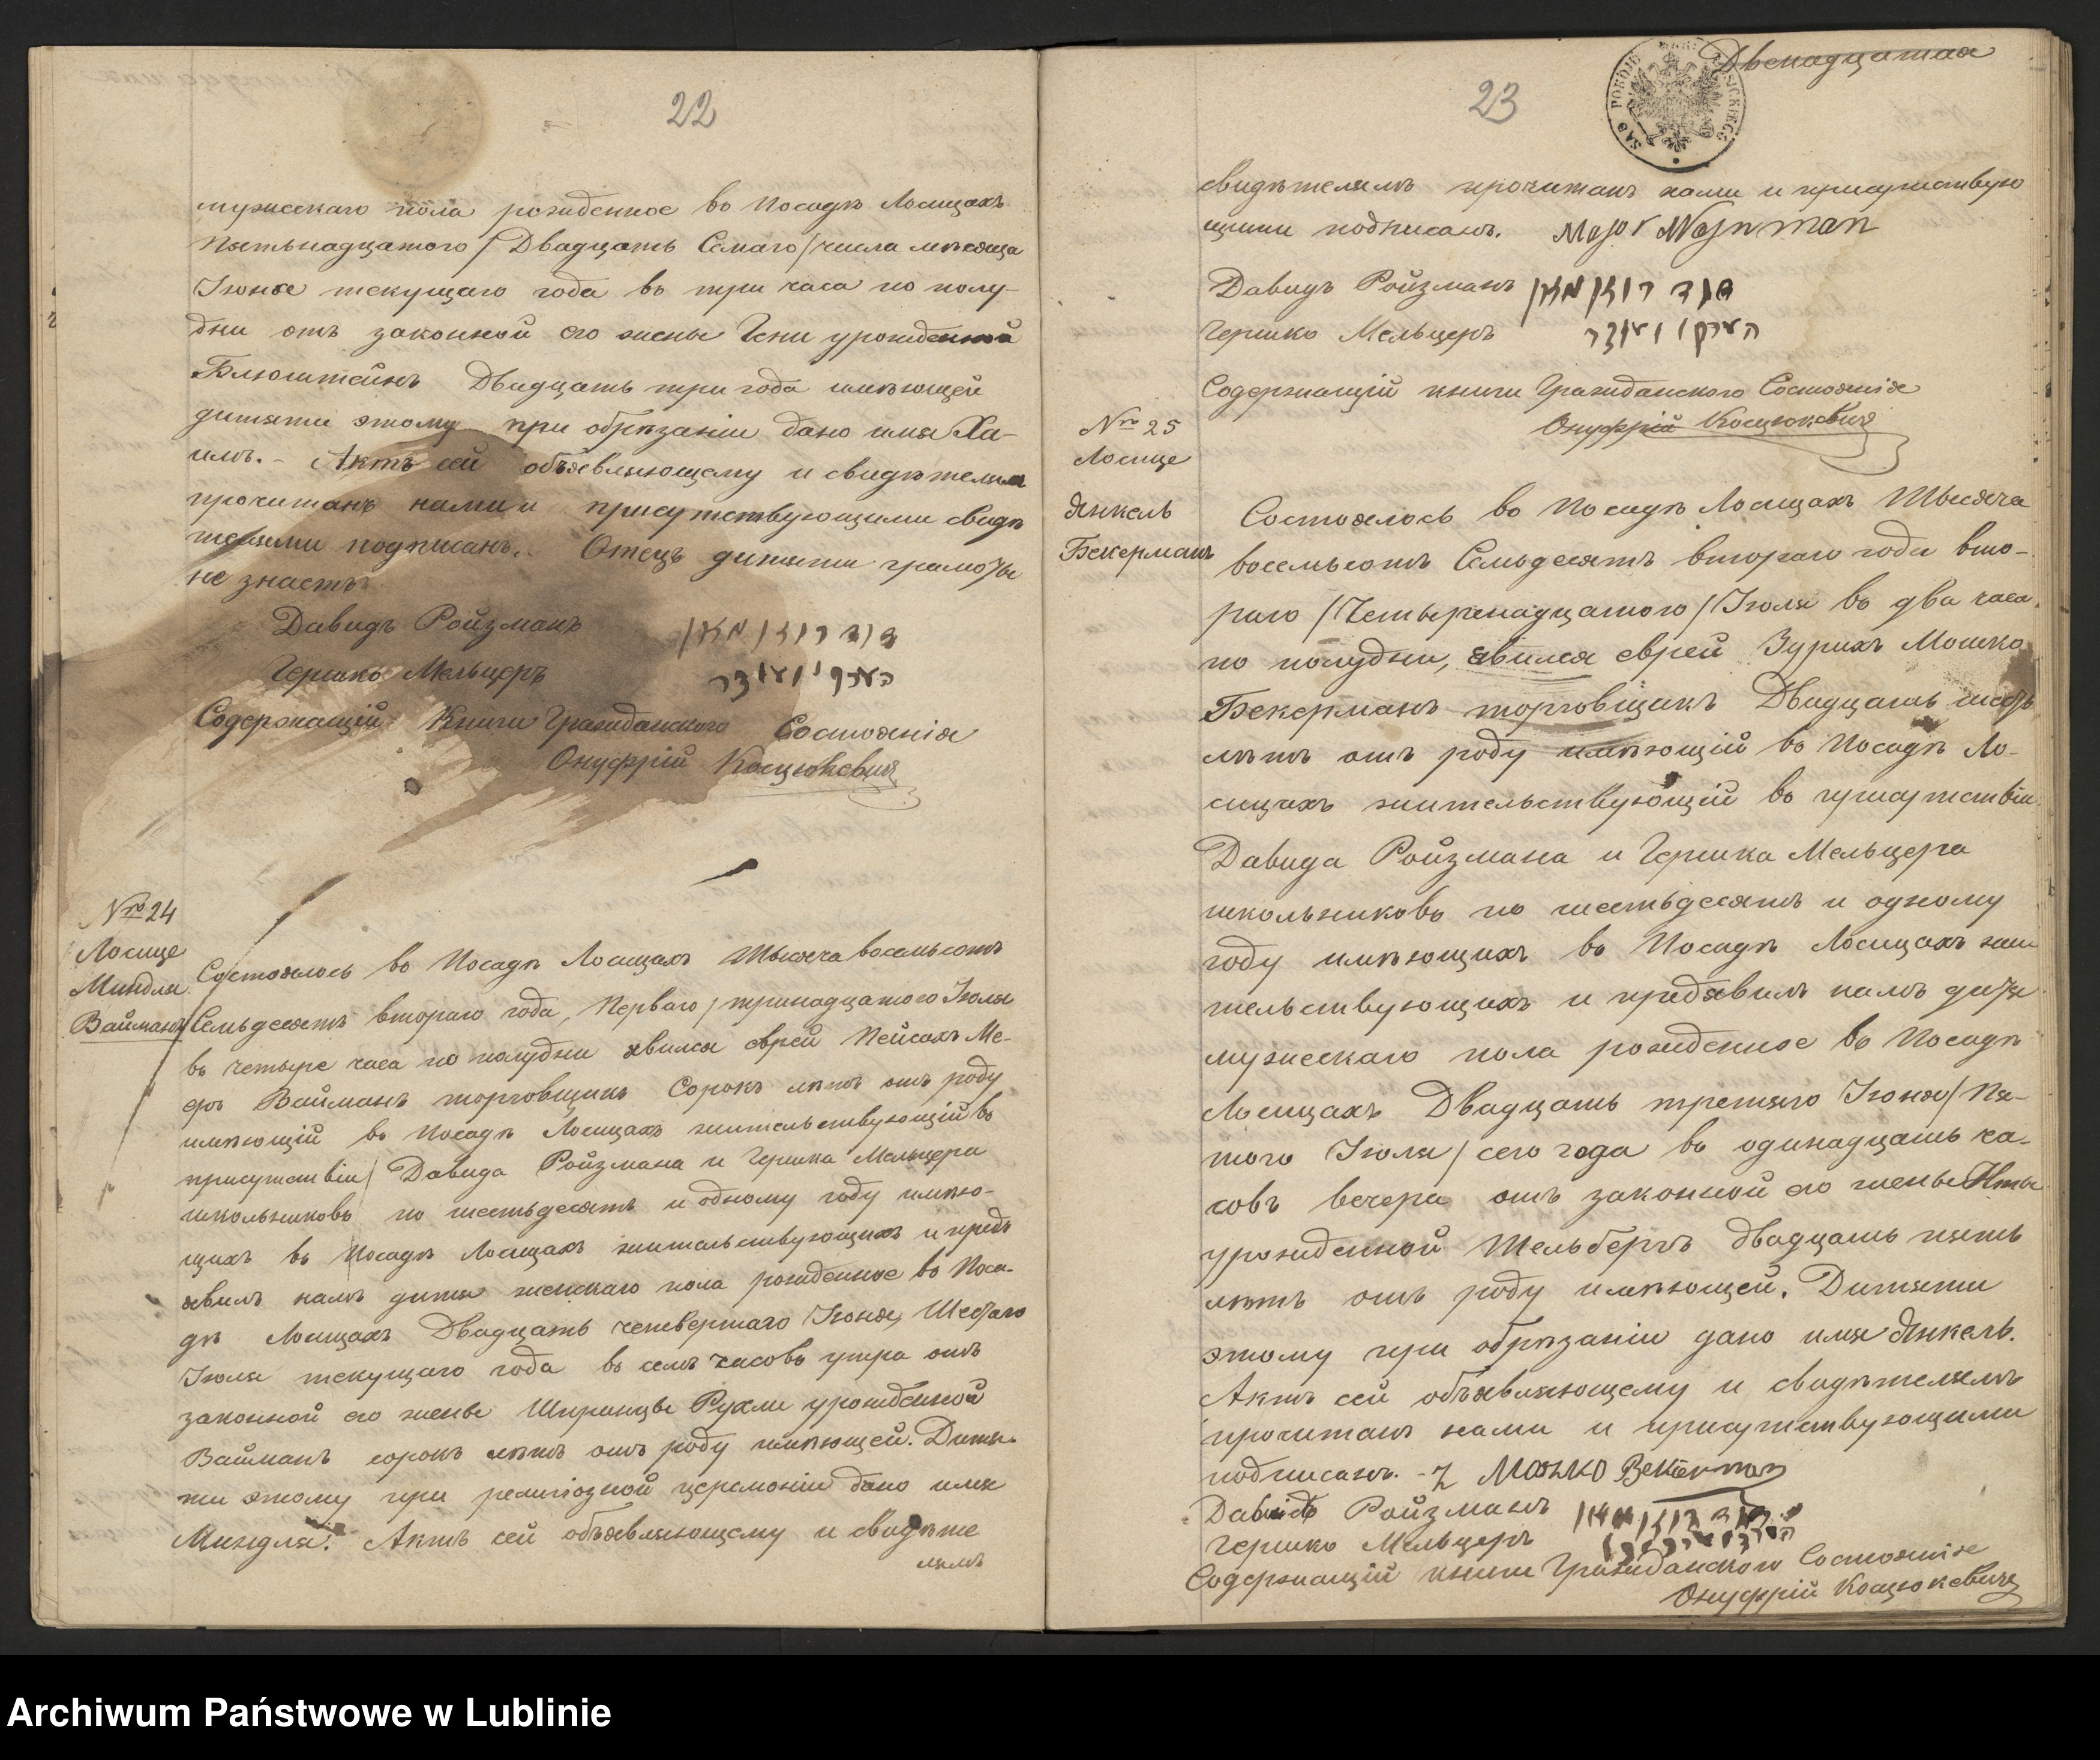 22
мужескаго пола рожденное во Посадѣ Лосицахъ
Пятьнадцатого / Двадцать Семаго / числа мѣсяца
Іюня текущаго года въ три часа по полу-
дни отъ законной его жены Гени урожденной
Блюштейнъ Двадцать три года имѣющей
дитяти этому при обрѣзаніи дано имя Ха-
имъ. - Актъ сей объявляющему и свидѣтелямъ
прочитанъ нами и присутствующими свидѣ
телями подписанъ. Отецъ дитяти грамоты
не знаетъ
Давидъ Ройзманъ
Гершко Мельцеръ
Содержащій Книги Гражданского Состоянія
Онуфрій Косцюкевичъ
№ 24
Лосице
Миндля
Вайманъ
Состоялось во Посадѣ Лосицахъ Тысяча восемьсотъ
Семьдесятъ втораго года, Перваго / тринадцатого Іюля
въ четыре часа по полудни явился еврей Пейсахъ Ме-
еръ Вайманъ торговщикъ Сорокъ лѣтъ отъ роду
имѣющій въ Посадѣ Лосицахъ жительствующій въ
присутствіи Давида Ройзмана и Гершка Мельцера
школьниковъ по шестьдесятъ и одному году имѣю-
щихъ въ Посадѣ Лосицахъ жительствующихъ и предъ
явилъ намъ дитя женскаго пола рожденное въ Поса-
дѣ Лосицахъ Двадцать четвертаго Іюня, Шестаго
Іюля текущаго года въ семь часовъ утра отъ
законной его жены Шпринцы Рухли урожденной
Вайманъ сорокъ лѣтъ отъ роду имѣющей. Дитя-
ти этому при религіозной церемоніи дано имя
Миндля. Актъ сей объявляющему и свидѣте
лямъ
Двенадцатая
23
свидѣтелямъ прочитанъ нами и присутствую
щими подписанъ. Major Wajnman
Давидъ Ройзманъ
Гершко Мельцеръ
Содержащій книги Гражданского Состоянія
Онуфрій Косцюкевичъ
№ 25
Лосице
Янкель
Бекерманъ
Состоялось во Посадѣ Лосицахъ Тысяча
восемьсотъ Семьдесятъ втораго года вто-
раго / Четырнадцатого / Іюля въ два часа
по полудни, явился еврей Зурихъ Мошко
Бекерманъ торговщикъ Двадцать шесть
лѣтъ отъ роду имѣющій во Посадѣ Ло-
сицахъ жительствующій во присутствіи
Давида Ройзмана и Гершка Мельцера
школьниковъ по шестьдесятъ и одному
году имѣющихъ въ Посадѣ Лосицахъ жи
тельствующихъ и предявилъ намъ дитя
мужескаго пола рожденное въ Посадѣ
Лосицахъ Двадцать третяго Іюня / Пя-
того Іюля / сего года въ одинадцать ча-
совъ вечера отъ законной его жены
урожденной Шельбергъ двадцать пять
лѣтъ отъ роду имѣющей. Дитяти
этому при обрѣзаніи дано имя Янкель.
Актъ сей объявляющему и свидѣтелямъ
прочитанъ нами и присутствующими
подписанъ. - Z Moszko Bekierman
Давидъ Ройзманъ
Гершко Мельцеръ
Содержащій книги Гражданского Состоянія
Онуфрій Косцюкевичъ
Archiwum Państwowe w Lublinie